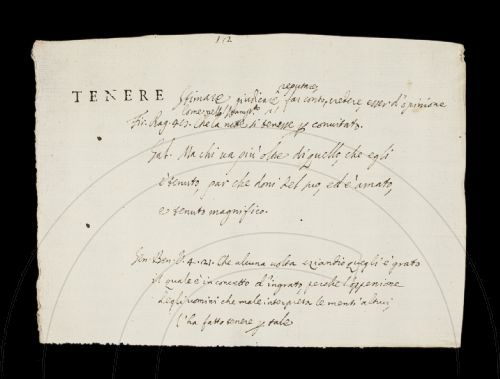 152
TENERE Stimare giudicare reputare, far conto, credere, esser d'opinione
Fir. Rag. che la notte si tenesse p convitato.
Gal. Ma chi va più oltre di quello, che egli
è tenuto, par che doni del suo, ed è amato,
e tenuto magnifico.
Sen. Ben. V. 4. 21. Che alcuna volta eziandio quegli è grato
il quale è in concetto d'ingrato, perche l'oppenione
degli uomini che male interpreta le menti altrui,
l'ha fatto tenere p tale